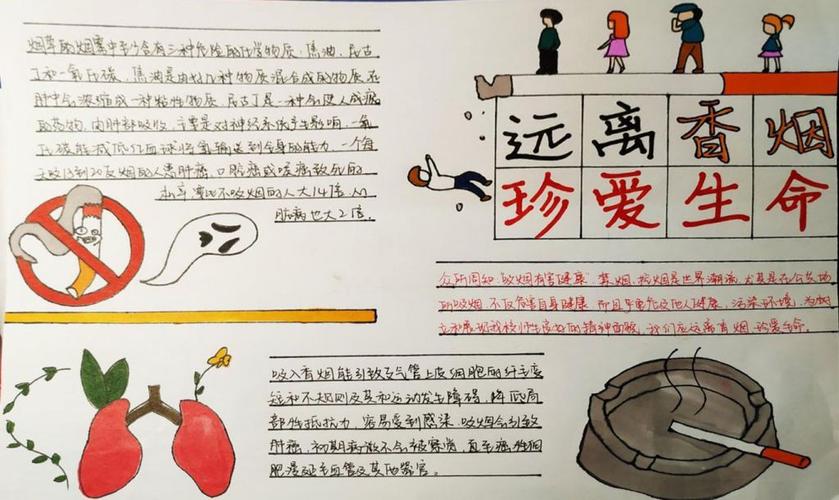 烟草的烟雾中至少含有三种危险的化学物质：焦油，尼古
丁和一氧化碳，焦油是由好几种物质混合成的物质，在
肺中会浓缩成一种粘性物质，尼古丁是一种会使人成瘾
的药物，由肺部吸收，主要是对神经系统产生影响，一氧
化碳能减低红血球将氧输送到全身的能力，一个每
天吸15到20支烟的人患肺癌，口腔癌或喉癌致死的
概率，要比不吸烟的人大14倍，
脏病也大2倍.
远离香烟
珍爱生命
众所周知："吸烟有害健康"，禁烟、控烟是世界潮流，尤其是在公共场
所吸烟，不仅危害自身健康，而且危及他人健康，污染环境，为
展现我校师生良好的精神面貌，我们应远离香烟，珍爱生命。
吸入香烟能引致支气管上皮细胞的纤毛变
短和不规则及其和运动发生障碍，降低局
部性抵抗力，容易受到感染，吸烟会引致
肺癌，初期病徵不会被察觉，直至癌性细
胞漫延至血管及其他器官。